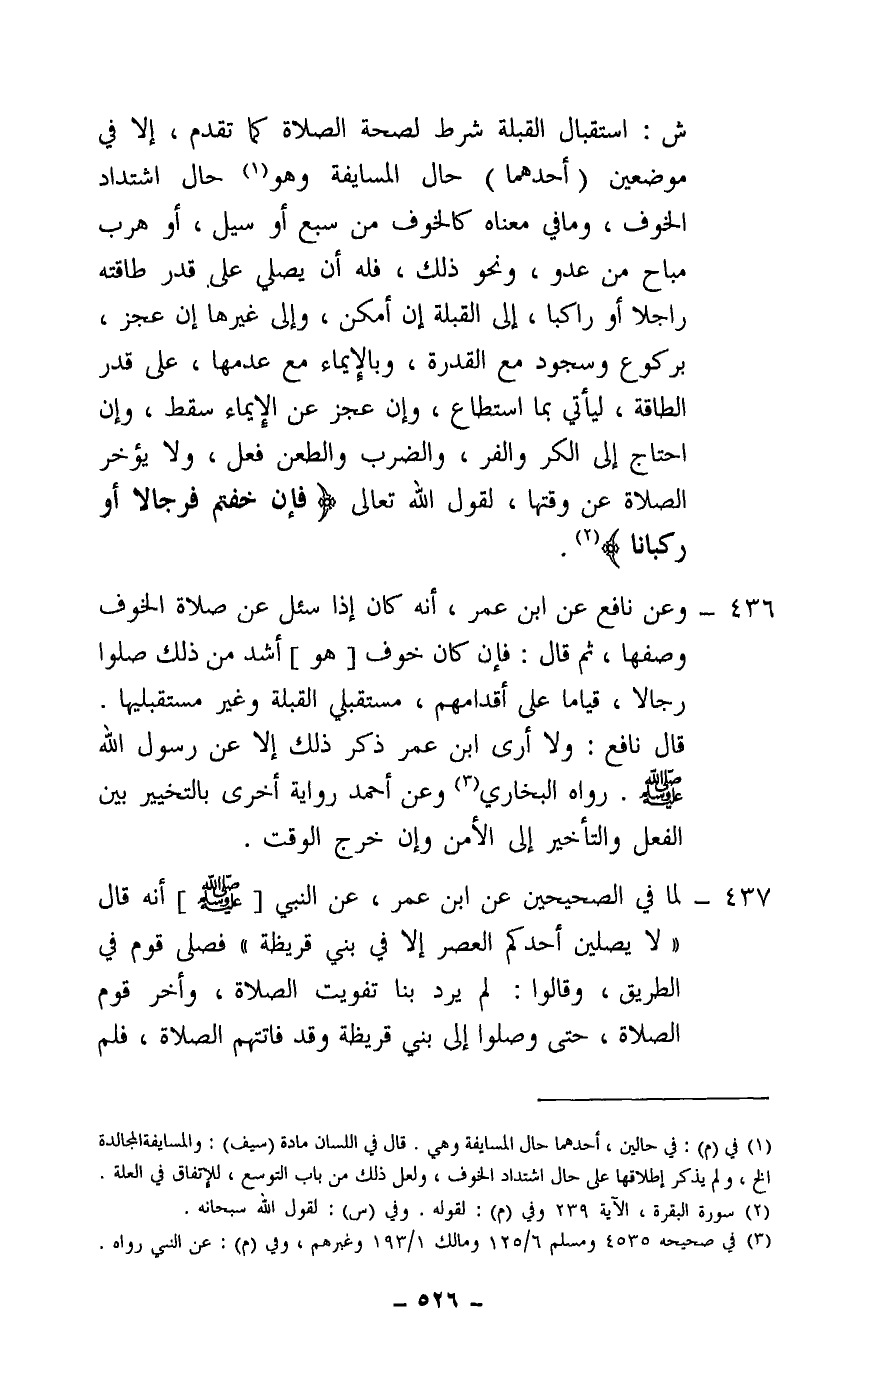 ش : استقبال القبلة شرط لصحة الصلاة كما تقدم ، إلا في
موضعين ( أحدهما ) حال المسايفة وهو(١) حال اشتداد
الخوف ، ومافي معناه كالخوف من سبع أو سيل ، أو هرب
مباح من عدو ، ونحو ذلك ، فله أن يصلي على قدر طاقته
راجلا أو راكبا ، إلى القبلة إن أمكن ، وإلى غيرها إن عجز ،
بركوع وسجود مع القدرة ، وبالإيماء مع عدمها ، على قدر
الطاقة ، ليأتي بما استطاع ، وإن عجز عن الإيماء سقط ، وإن
احتاج إلى الكر والفر ، والضرب والطعن فعل ، ولا يؤخر
الصلاة عن وقتها ، لقول الله تعالى ﴿ فإن خفتم فرجالا أو
ركبانا ﴾(٢) .
٤٣٦ – وعن نافع عن ابن عمر ، أنه كان إذا سئل عن صلاة الخوف
وصفها ، ثم قال : فإن كان خوف [ هو ] أشد من ذلك صلوا
رجالا ، قياما على أقدامهم ، مستقبلي القبلة وغير مستقبليها .
قال نافع : ولا أرى ابن عمر ذكر ذلك إلا عن رسول الله
ﷺ . رواه البخاري(٣) وعن أحمد رواية أخرى بالتخيير بين
الفعل والتأخير إلى الأمن وإن خرج الوقت .
٤٣٧ – لما في الصحيحين عن ابن عمر ، عن النبي [ ﷺ ] أنه قال
« لا يصلين أحدكم العصر إلا في بني قريظة » فصلى قوم في
الطريق ، وقالوا : لم يرد بنا تفويت الصلاة ، وأخر قوم
الصلاة ، حتى وصلوا إلى بني قريظة وقد فاتتهم الصلاة ، فلم
(١) في (م) : في حالين ، أحدهما حال المسايفة وهي . قال في اللسان مادة (سيف) : والمسايفةالمجالدة
الخ ، ولم يذكر إطلاقها على حال اشتداد الخوف ، ولعل ذلك من باب التوسع ، للإتفاق في العلة .
(٢) سورة البقرة ، الآية ٢٣٩ وفي (م) : لقوله . وفي (س) : لقول الله سبحانه .
(٣) في صحيحه ٤٥٣٥ ومسلم ١٢٥/٦ ومالك ١٩٣/١ وغيرهم ، وفي (م) : عن النبي رواه .
– ٥٢٦ –